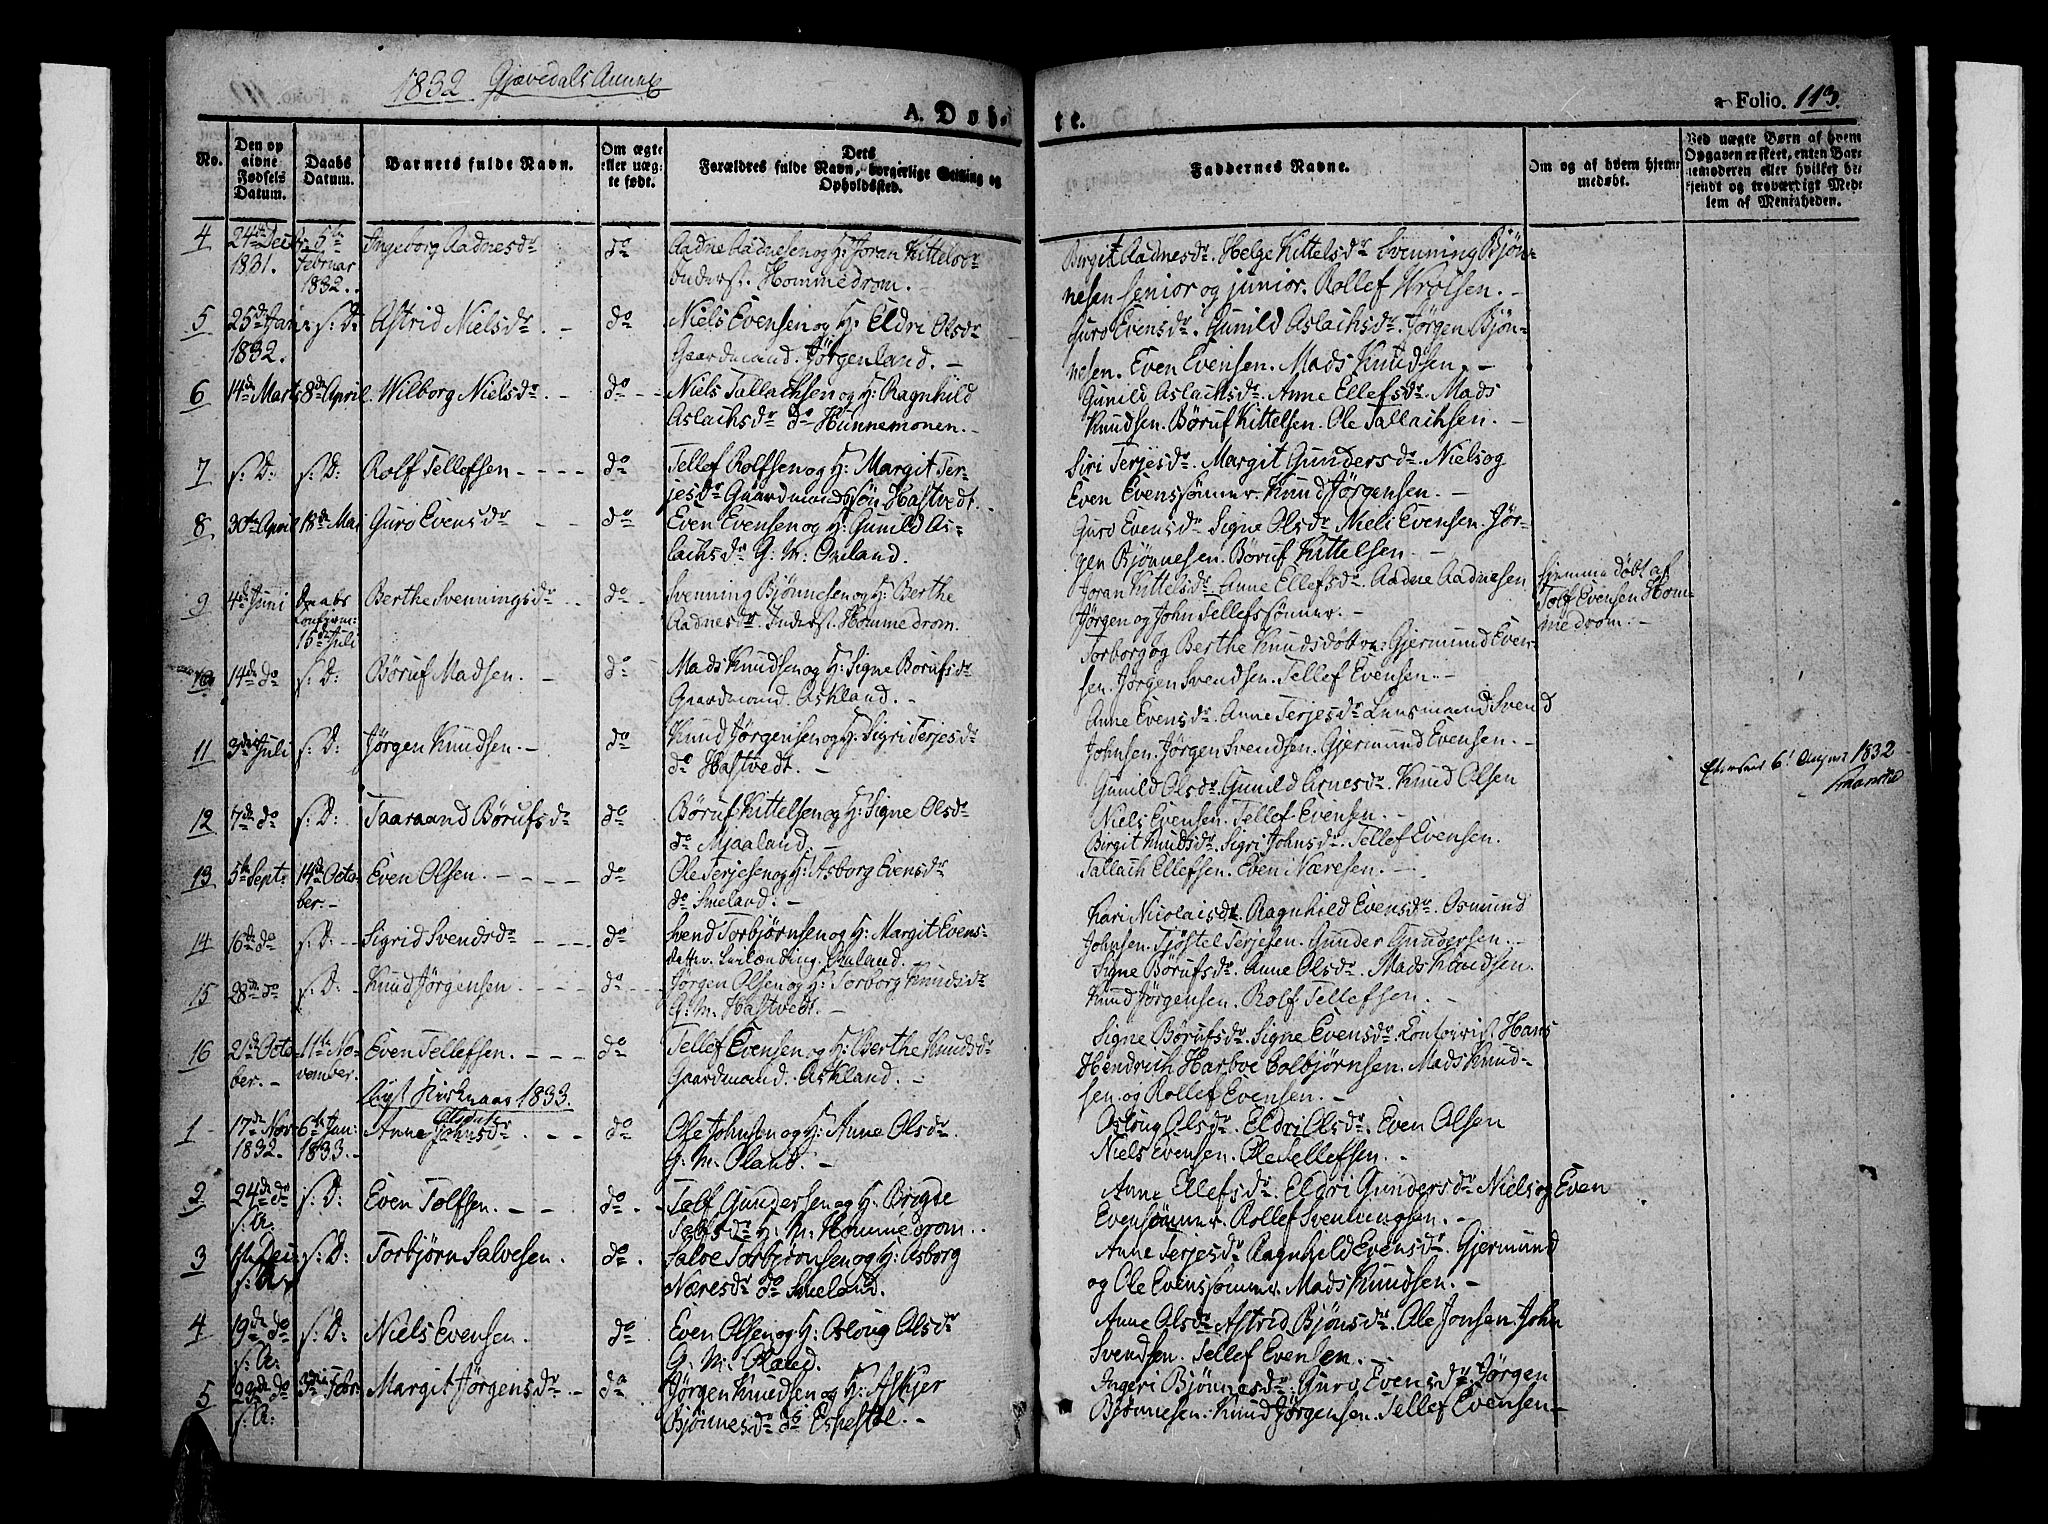 1832 Gjøvedals Annex
A. Døbte.
a Folio. 113.
No.
Den op
givne
Fødsels
Datum.
Daabs
Datum.
Barnets fulde Navn.
Om ægte
eller uæg-
te født.
Dets
Forældres fulde Navn, borgerlige Stilling og
Opholdssted.
Faddernes Navne.
Om og af hvem hjem-
medøbt.
Ved uægte Børn af hvem
Opgaven er skeet, enten Bar-
nemoderen eller hvilket be-
kjendt og troværdigt Med-
lem af Menigheden.
4 24de Decbr 5te Ingeborg Aadnesdr do Aadne Aadnesen og H: Joran Kittelsdr Birgit Aadnesdr. Helge Kittelsdr Svenning Bjøn-
1831. Februar 1832. Inderst. Hommedrom. - nesen senior og junior. Rollef Wrolsen. -
5 25de Jan. s: D: Astrid Nielsdr. - do Niels Evensen og H: Eldri Olsdr Guro Evensdr. Gunild Aslachsdr. Jørgen Bjøn-
1832. Gaardmand. Jørgenland. - nesen. Even Evensen. Mads Knudsen. -
6 14de Marts 8de April. Wilborg Nielsdr. - do - Niels Tallachsen og H: Ragnhild Gunild Aslachsdr. Anne Ellefsdr. Mads
Aslachsdr do Hunnemonen. - Knudsen. Børuf Kittelsen. Ole Tallachsen. -
7 s: D: s: D: Rolf Tellefsen - - - - do Tellef Rolfsen og H: Margit Ter- Siri Terjesdr. Margit Gundersdr. Niels og
jesdr Gaardmandssøn Hastvedt. Even Evenssønner. Knud Jørgensen. -
8 30te April 18de Mai Guro Evensdr - - do Even Evensen og H: Gunild As- Guro Evensdr Signe Olsdr Niels Evensen. Jør-
lachsdr G: M: Omland. gen Bjønnesen. Børuf Kittelsen. -
9 4de Juni Daabs Berthe Svenningsdr - do - Svenning Bjønnesen og H: Berthe Joran Kittelsdr Anne Ellefsdr. Aadne Aadnesen Hjemmedøbt af
15de Juli Aadnesdr. Inderst. Hommedrom. Jørgen og John Tellefssønner. - Tolf Evensen Hom-
medrom. -
10 14de do s: D: Børuf Madsen. - do Mads Knudsen og H: Signe Børufsdr Torborg og Berthe Knudsdøttre: Gjermund Even-
Gaardmand. Askland. - sen. Jørgen Svendsen. Tellef Evensen. -
11 3die Juli s: D: Jørgen Knudsen. - do Knud Jørgensen og H: Sigri Terjesdr Anne Evensdr. Anne Terjesdr Lensmand Svend
do Hastvedt. - Johnsen. Jørgen Svendsen. Gjermund Evensen. -
6 August 1832
12 7de do s: D: Taaraand Børufsdr do Børuf Kittelsen og H: Signe Olsdr Gunild Olsdr. Gunild Arnesdr. Knud Olsen
do Mjaaland. - Niels Evensen. Tellef Evensen. -
13 5te Sept: 14de Octo- Even Olsen. - - - - do Ole Terjesen og H: Asborg Evensdr Birgit Knudsdr. Sigri Johnsdr. Tellef Evensen.
ber. - do Smeland. - Tallach Ellefsen. Even Næresen. -
14 16de do s: D: - Sigrid Svendsdr - - - do Svend Torbjørnsen og H: Margit Evens- Kari Nicolaisdr. Ragnhild Evensdr. Osmund
datter. Omland. - Johnsen. Tjøstel Terjesen. Gunder Gundersen. -
15 28de do s: D: Knud Jørgensen - - - - do - Jørgen Olsen og H: Torborg Knudsdr Signe Børufsdr. Anne Olsdr. Mads Knudsen.
G: M: Hastvedt. - Knud Jørgensen. Rolf Tellefsen. -
16 21de Octo- 11te No- Even Tellefsen. - - - do Tellef Evensen og H: Berthe Knudsdr Signe Børufsdr. Signe Evensdr. Contoirist Hans
ber. - vember. Gaardmand. Askland. - Hendrich Harboe Colbjørnsen. Mads Knud-
sen. og Rollef Evensen. -
Nyt Kirkeaar 1833.
1 17de Nov 6te Jan: Anne Olsdr - - do Ole Johnsen og H: Anne Olsdr. Osloug Olsdr. Eldri Olsdr. Even Olsen
1832. 1833. - G: M: Oland. - Niels Evensen. Ole Tellefsen. -
2 24de do s: D: Even Tolfsen. - - do. - Tolf Gundersen og H: Brigde Anne Ellefsdr. Eldri Gundersdr Niels og Even
s: A: Tolfsdr G: M: Hommedrom. Evensønner. Rollef Svenningsen. -
3 1ste Dec: s: D: Torbjørn Salvesen. do. Salve Torbjørnsen og H: Asborg Anne Terjesdr Ragnhild Evensdr. Gjermund
s: A: Næresdr do Smeland. og Ole Evenssønner. Mads Knudsen. -
4 19de do s: D: Niels Evensen. do Even Olsen og H: Osloug Olsdr Anne Olsdr Astrid Bjønsdr. Ole Jonsen John
s: A: G: M: Oland. Svendsen. Tellef Evensen. -
5 23de do 3die Febr. Margit Jørgensdr. - do Jørgen Knudsen og H: Askjer Ingeri Bjønnesdr. Guro Evensdr. Jørgen
s: A: Bjønnesdr do Espestøl. - Bjønnesen. Knud Jørgensen. Tellef Evensen -